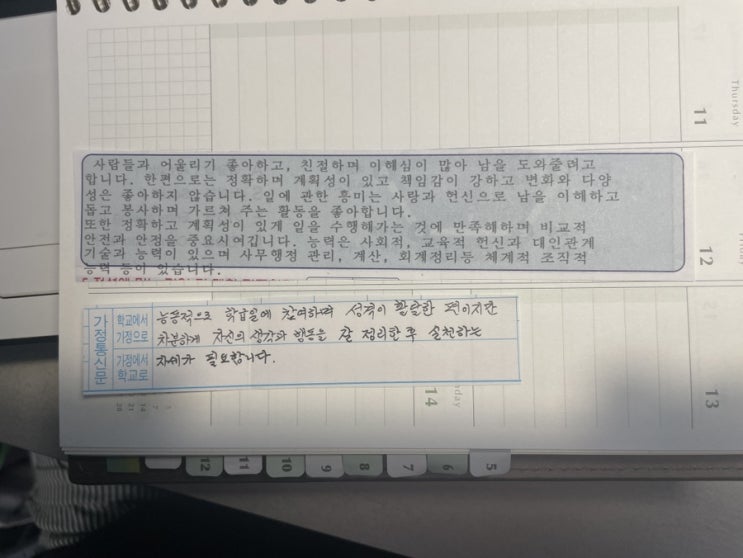 사람들과 어울리기 좋아하고, 친정하며 이해심이 많아 남을 도와줄려고
합니다. 한편으로는 정확하며 계획성이 있고 책임감이 강하고 변화와 다양
성은 좋아하지 않습니다. 일에 관한 흥미는 사랑과 헌신으로 남을 이해하고
돕고 봉사하며 가르쳐 주는 활동을 좋아합니다.
또한 정확하고 계획성이 있게 일을 수행해가는 것에 만족해하며 비교적
안전과 안정을 중요시여깁니다. 능력은 사회적, 교육적 헌신과 대인관계
기술과 능력이 있으며 사무행정 관리, 계산, 회계정리등 체계적 조직적
능력 등이 있습니다.
가정통신문
학교에서 가정으로
능동적으로 학습일에 참여하며 성격이 활달한 편이지만
차분하게 자신의 생각과 행동을 잘 정리한 후 실천하는
가정에서 학교로
자세가 필요합니다.
Thursday
11
12
13
14
12
11
10
9
8
7
6
5